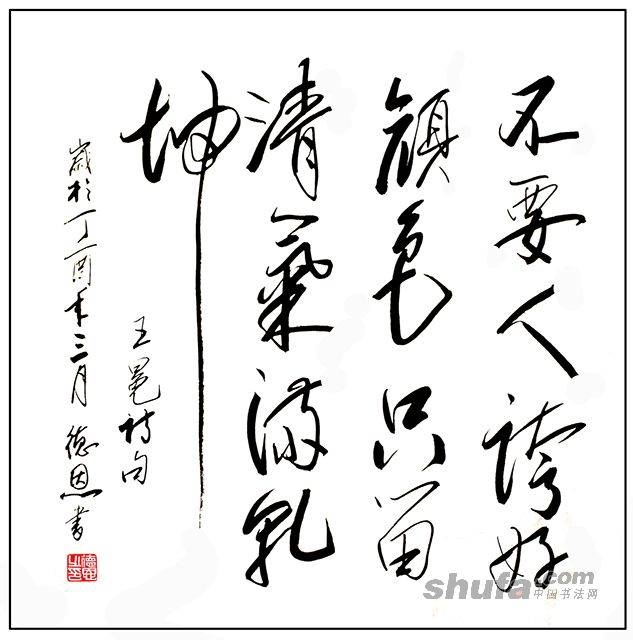 不要人誇好
顏色只留
清氣滿乾
坤
王冕詩句
歲於丁酉年三月 德恩書
shufa.com
中国书法网